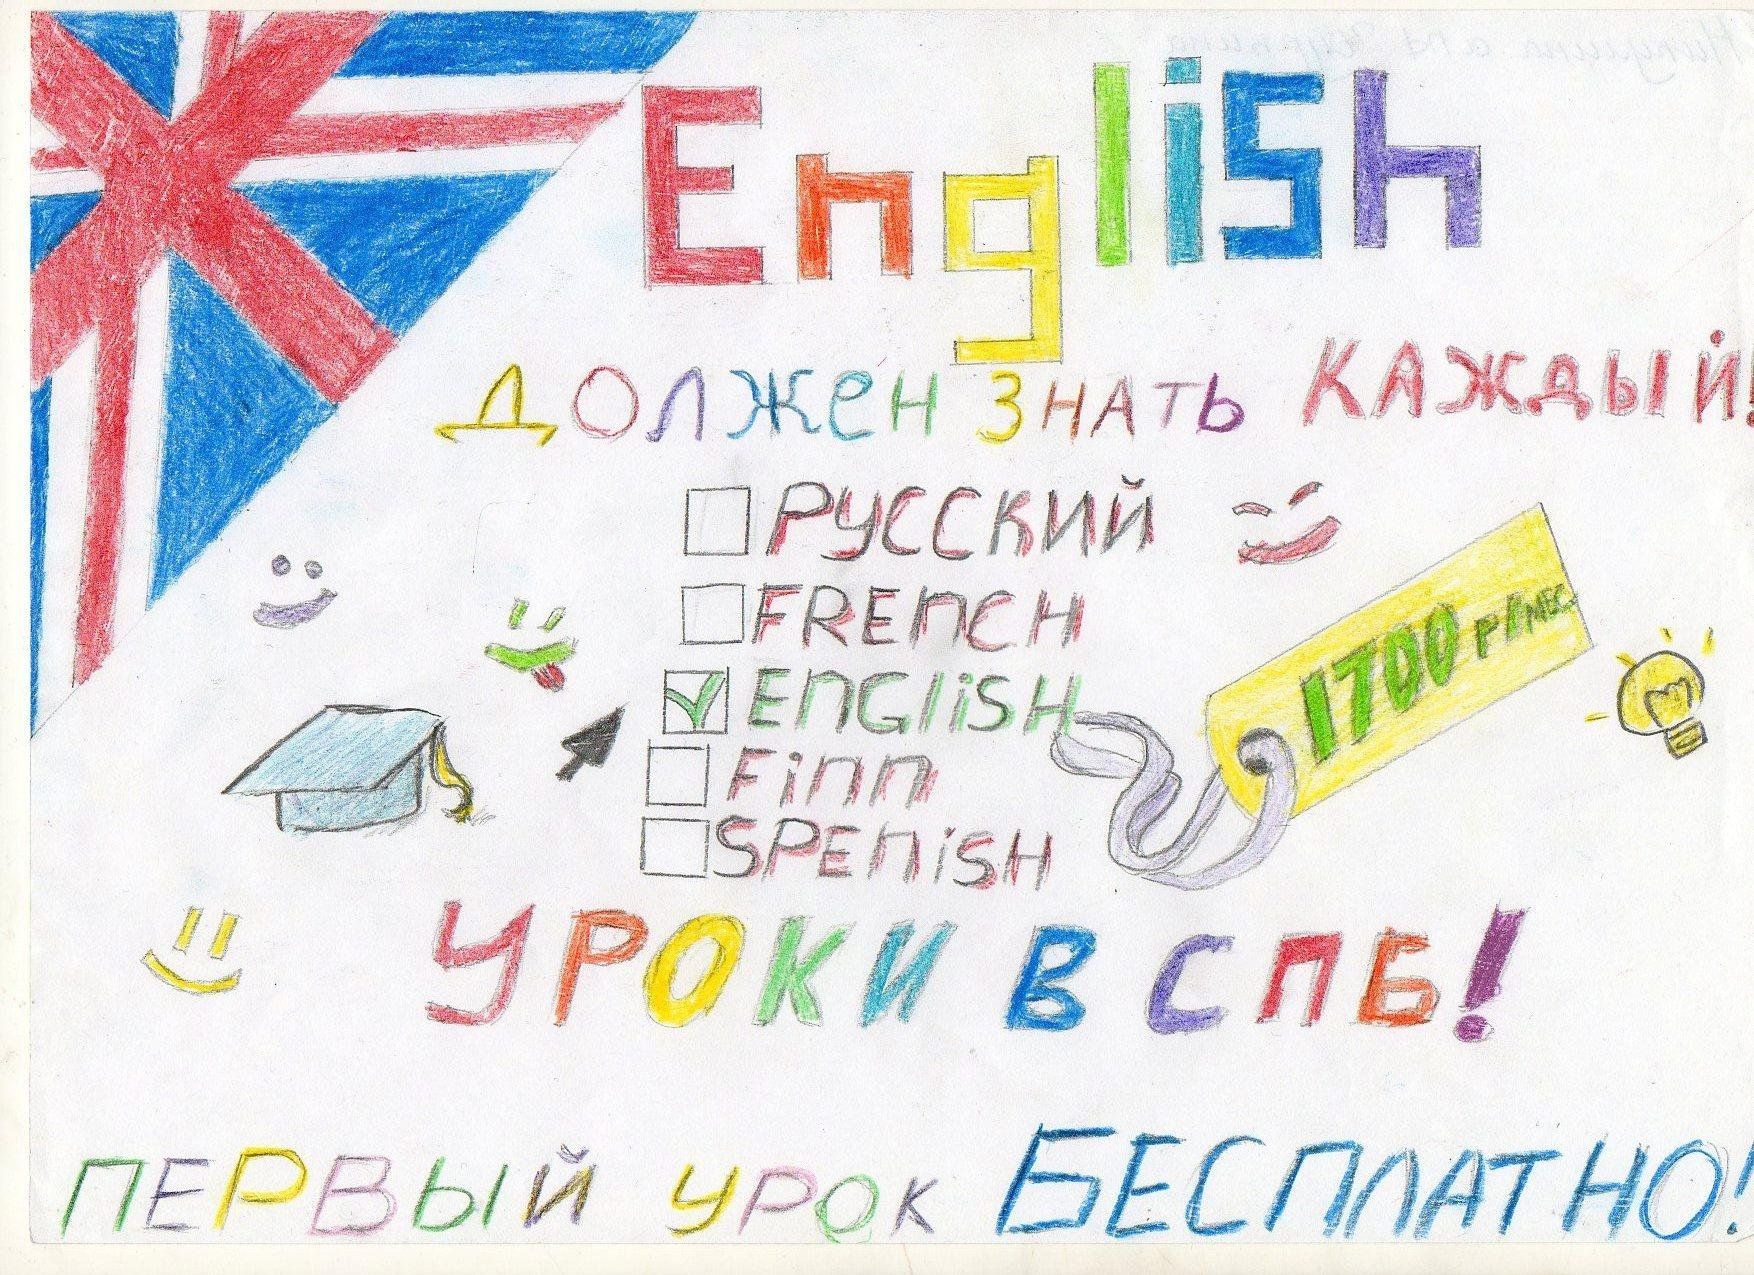 English
должен знать каждый!
Русский
FRENCH
ENGLISH
Finn
SPENISH
1700 р/мес.
Уроки в СПб!
Первый урок БЕСПЛАТНО!